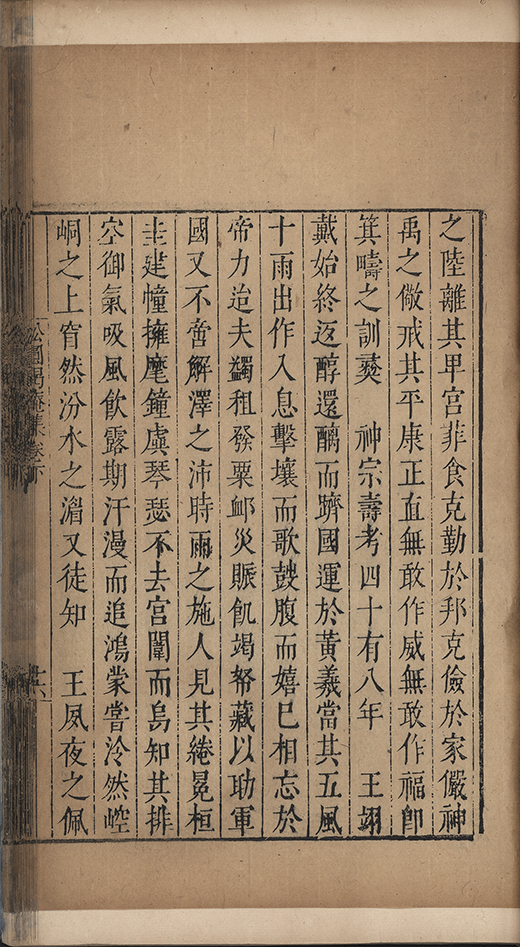 之陸離其卑宮菲食克勤於邦克儉於家儼神
禹之儆戒其平康正直無敢作威無敢作福卽
箕疇之訓彝　神宗壽考四十有八年　王翊
戴始終返醇還酺而躋國運於黃羲當其五風
十雨出作入息擊壤而歌鼓腹而嬉已相忘於
帝力迨夫蠲租發粟邮災賑飢竭帑藏以助軍
國又不啻解澤之沛時雨之施人見其綣冕桓
圭建幢擁麾鐘虡琴瑟不去宮闈而烏知其排
空御氣吸風飲露期汗漫而追鴻蒙嘗泠然崆
峒之上窅然汾水之湄又徒知　王夙夜之佩